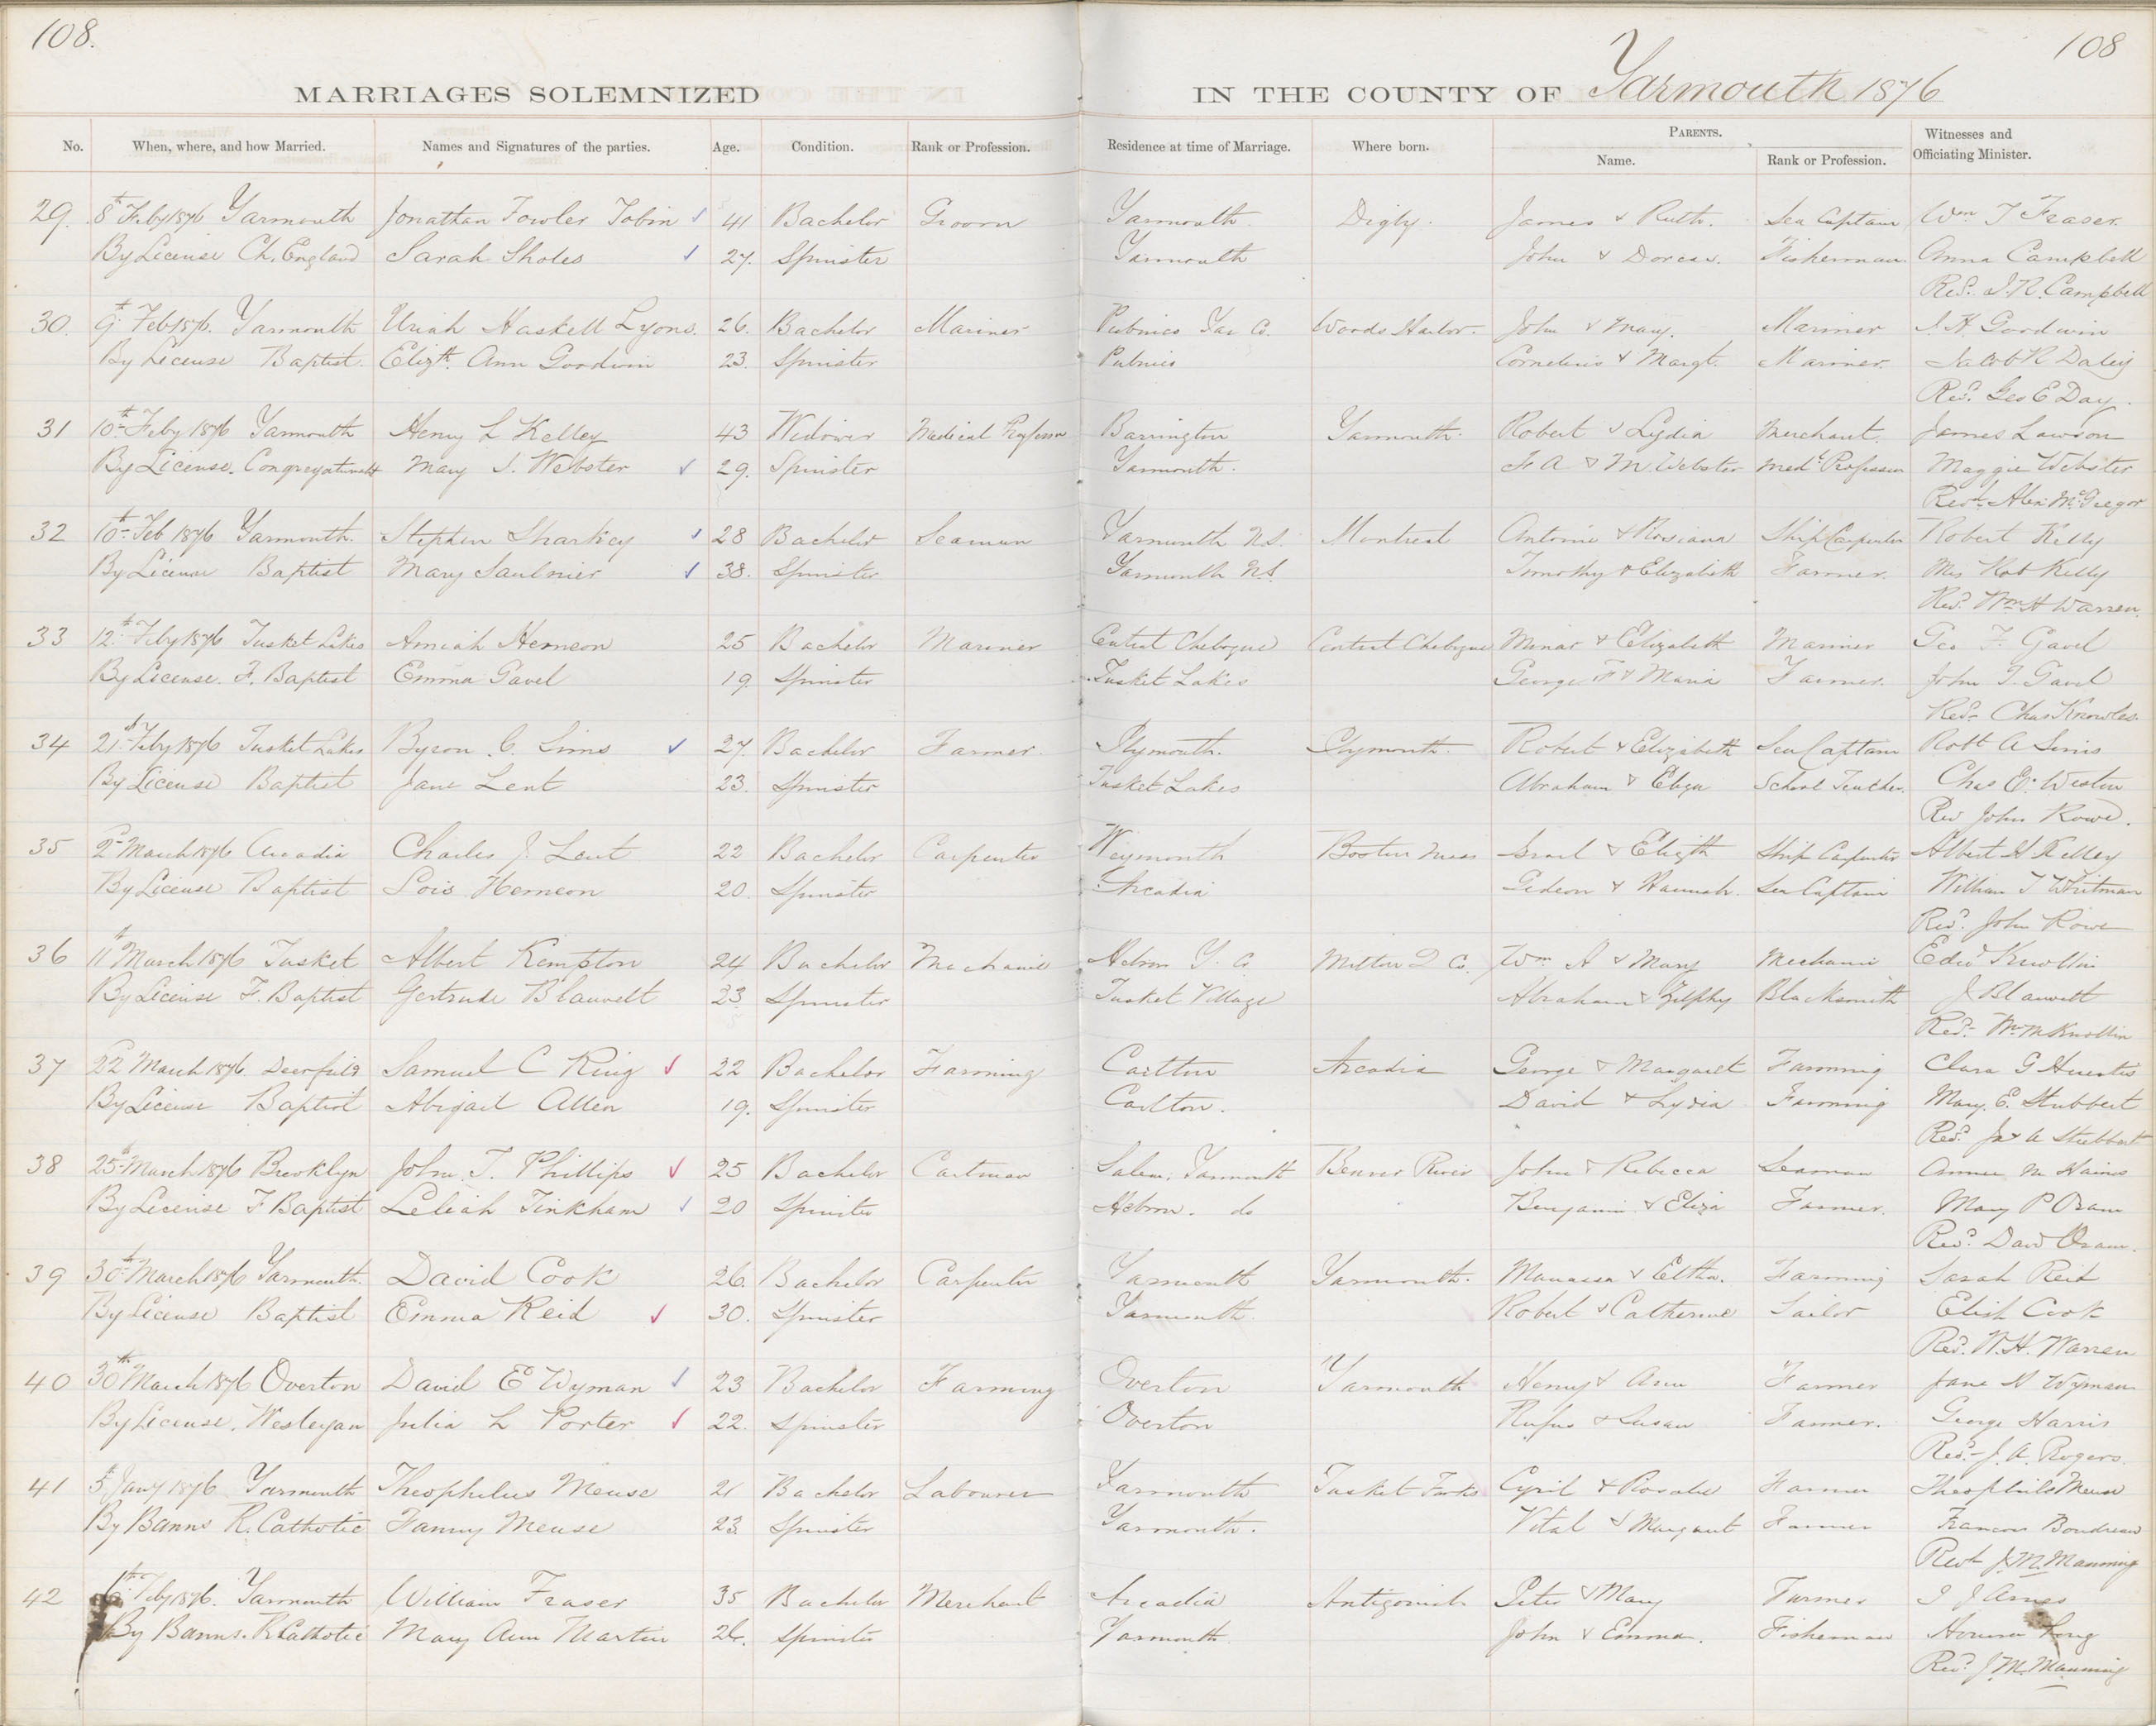 108.
108
MARRIAGES SOLEMNIZED
IN THE COUNTY OF Yarmouth 1876
No. When, where, and how Married. Names and Signatures of the parties. Age. Condition. Rank or Profession. Residence at time of Marriage. Where born. PARENTS. Name. Rank or Profession. Witnesses and Officiating Minister.
29. 8th Feby 1876 Yarmouth Jonathan Fowler Tobin 41 Bachelor Groom Yarmouth Digby. James & Ruth. Sea Captain Wm T Fraser.
By License Ch. England Sarah Sholes 27. Spinster Yarmouth John & Dorcas. Fisherman Anna Campbell
Revd. J. R. Campbell
30. 9th Feb 1876. Yarmouth Uriah Haskell Lyons. 26. Bachelor Mariner Pubnico Yar Co. Woods Harbor. John & Mary. Mariner J. H. Goodwin
By License Baptist. Elizth. Ann Goodwin 23. Spinster Pubnico Cornelius & Margt. Mariner. Jacob R Daley
Revd. Geo E Day.
31 10th Feby 1876 Yarmouth Henry L Kelley 43 Widower Medical Professor Barrington Yarmouth. Robert & Lydia Merchant. James Lawson
By License. Congregationalist Mary J. Webster 29. Spinster Yarmouth. F. A & M Webster Medl Professor Maggie Webster
Revd. Alex McGregor
32 10th Feb 1876 Yarmouth. Stephen Sharkey 28 Bachelor Seaman Yarmouth N.S. Montreal Antoine & Rosiana Ship Carpenter Robert Kelly
By License Baptist Mary Saulnier 38. Spinster Yarmouth N.S. Timothy & Elizabeth Farmer. Mrs Rob Kelly
Revd. Wm H Warren.
33 12th Feby 1876 Tusket Lakes Amiah Hemeon 25 Bachelor Mariner Central Chebogue Central Chebogue Minar & Elizabeth Mariner Geo F. Gavel
By License. F. Baptist Emma Gavel 19. Spinster Tusket Lakes George F & Maria Farmer. John T. Gavel
Revd Chas Knowles.
34 21st Feby 1876 Tusket Lakes Byron C. Sims 27. Bachelor Farmer. Plymouth. Plymouth. Robert & Elizabeth Sea Captain Robt A Sims
By License Baptist Jane Lent 23. Spinster Tusket Lakes Abraham & Eliza School Teacher. Chas E. Weston
Rev John Rowe.
35 2d March 1876 Arcadia Charles J. Lent 22 Bachelor Carpenter Weymouth Boston Mass Israel & Elizth Ship Carpenter Albert H Kelley
By License Baptist Lois Hemeon 20. Spinster Arcadia Gideon & Hannah. Sea Captain William T Whitman
Revd. John Rowe
36 11th March 1876 Tusket Albert Kempton 24 Bachelor Mechanic Hebron Y. Co. Milton Q Co. Wm A & Mary Mechanic Edwd Knollin
By License F. Baptist Gertrude Blauvelt 23 Spinster Tusket Village Abraham & Zilphy Blacksmith J Blauvelt
Revd. Wm M Knollin
37 22d March 1876. Deerfield Samuel C Ring 22 Bachelor Farming Carlton Arcadia George & Margaret Farming Clara G Huestis
By License Baptist Abigail Allen 19. Spinster Carlton. David & Lydia Farming Mary. E. Stubbert
Revd. Jas A Stubbert
38 25th March 1876 Brooklyn John. T. Phillips 25 Bachelor Cartman Salem, Yarmouth Beaver River John & Rebecca Seaman Annie M Haines
By License F Baptist Leliah Tinkham 20 Spinster Hebron. do Benjamin & Eliza Farmer. Mary P Oram
Revd. Davd Oram.
39 30th March 1876 Yarmouth. David Cook 26. Bachelor Carpenter Yarmouth Yarmouth. Manassa & Eltha. Farming Sarah Reid
By License Baptist Emma Reid 30. Spinster Yarmouth. Robert & Catherine Sailor Elish Cook
Revd. W. H. Warren
40 30th March 1876 Overton David E Wyman 23 Bachelor Farming Overton Yarmouth Henry & Ann Farmer Jane H Wyman
By License. Wesleyan Julia L Porter 22. Spinster Overton Rufus & Susan Farmer. George Harris
Revd. J. A. Rogers.
41 5th Jany 1876 Yarmouth Theophilus Meuse 21 Bachelor Labourer Yarmouth Tusket Forks Cyril & Rosalie Farmer Theophile Meuse
By Banns R. Catholic Fanny Meuse 23. Spinster Yarmouth. Vital & Margaret Farmer Francois Boudreau
Revd J. M. Manning
42 Feby 1876. Yarmouth William Fraser 35 Bachelor Merchant Arcadia Antigonish Peter & Mary Farmer
By Banns. R Catholic Mary Ann Martin 26. Spinster Yarmouth John & Emma. Fisherman Honora
Revd. J. M. Manning